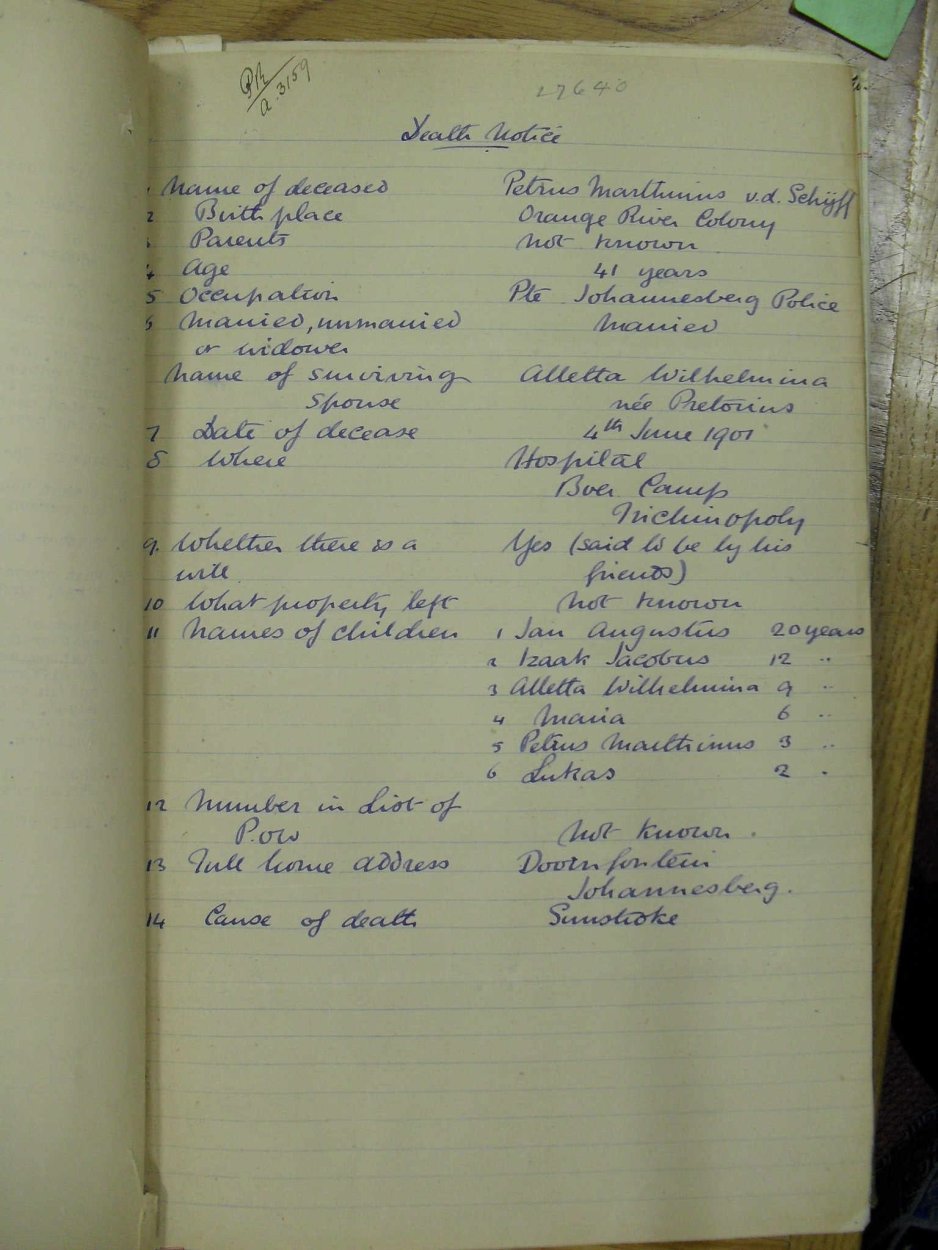 PR
A 3159
27640
Death Notice
1 Name of deceased Petrus Marthinus v.d. Schijff
2 Birth place Orange River Colony
3 Parents not known
4 Age 41 years
5 Occupation Pte Johannesberg Police
6 Married, unmarried Married
or widower
Name of surviving Alletta Wilhelmina
Spouse née Pretorius
7 Date of decease 4th June 1901
8 Where Hospital
Boer Camp
Trichinopoly
9. Whether there is a Yes (said to be by his
will friends)
10 What property left Not known
11 Names of children 1 Jan Augustus 20 years
2 Izaak Jacobus 12 "
3 Alletta Wilhelmina 9 "
4 Maria 6 "
5 Petrus Marthinus 3 "
6 Lukas 2 "
12 Number in List of
P.OW Not known.
13 Full home address Doornfontein
Johannesberg.
14 Cause of death Sunstroke